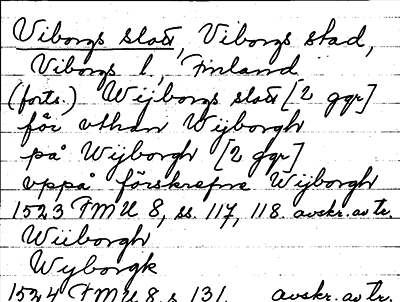 Viborgs slott, Viborgs stad,
Viborgs l., Finland
(forts.) Wijborgs slott [2 ggr]
för vthan Wijborgh
på Wijborgh [2 ggr]
vppå förskrefne Wijborgh
1523 FMU 8, ss. 117, 118. avskr. av tr.
Wiiborgh
Wyborgk
1524 FMU 8, s. 131. avskr. av tr.